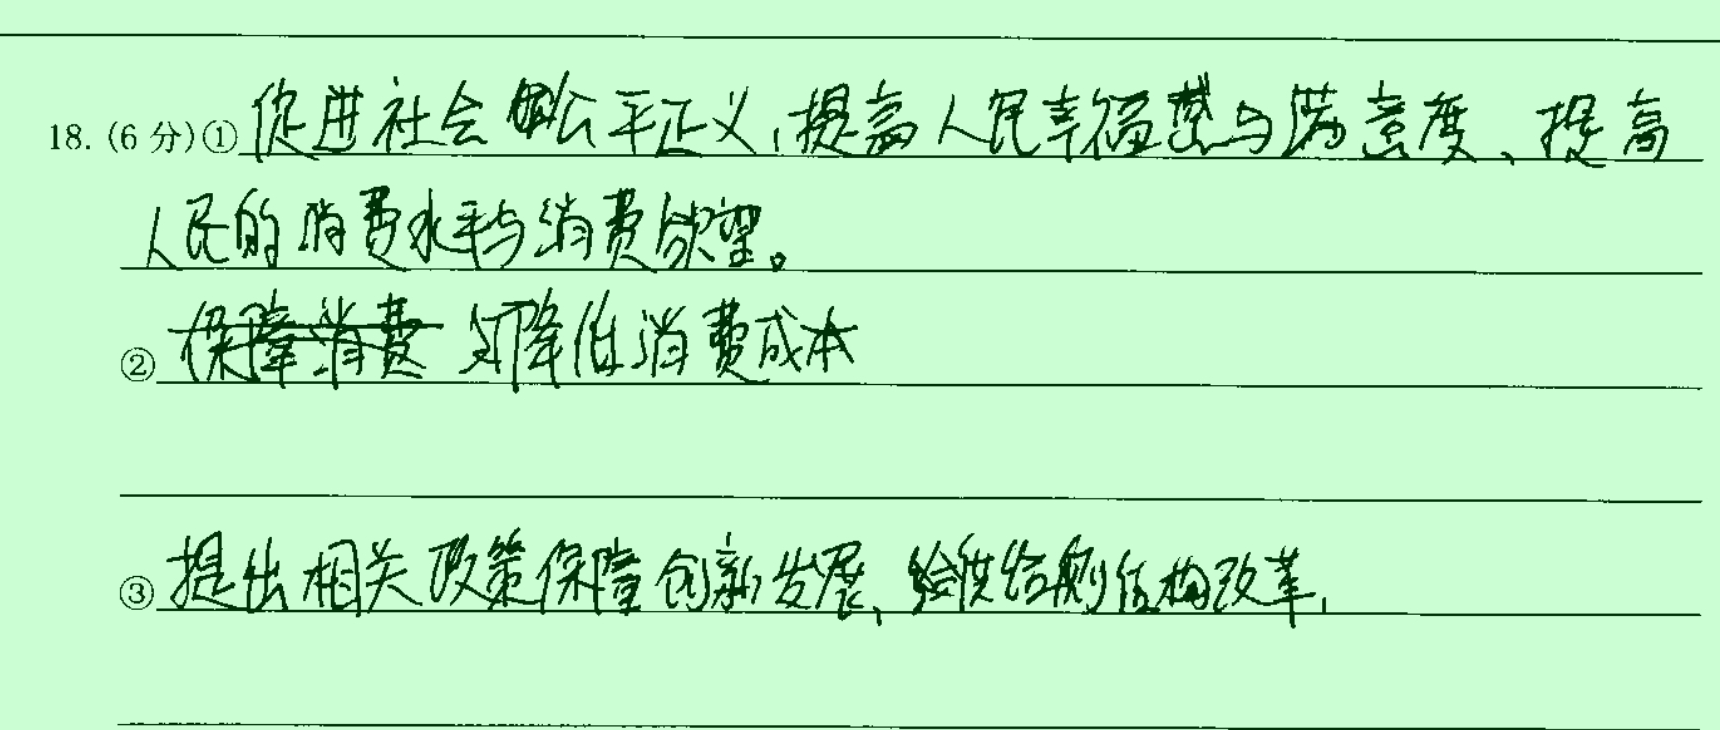 18. (6 分)①促进社会公平正义,提高人民幸福感与满意度、提高
人民的消费水平与消费欲望。
② 保障消费 降低消费成本
③ 提出相关政策保障创新发展、供给侧结构改革,